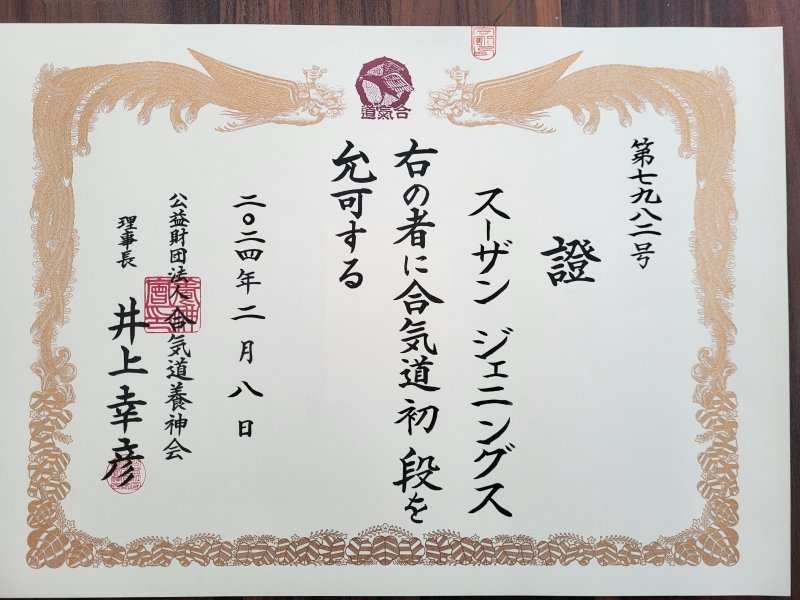 合気道
第七九八二号
證
スーザン ジェニングス
右の者に合気道初段を
允可する
二〇二四年二月八日
公益財団法人合気道養神会
理事長 井上幸彦